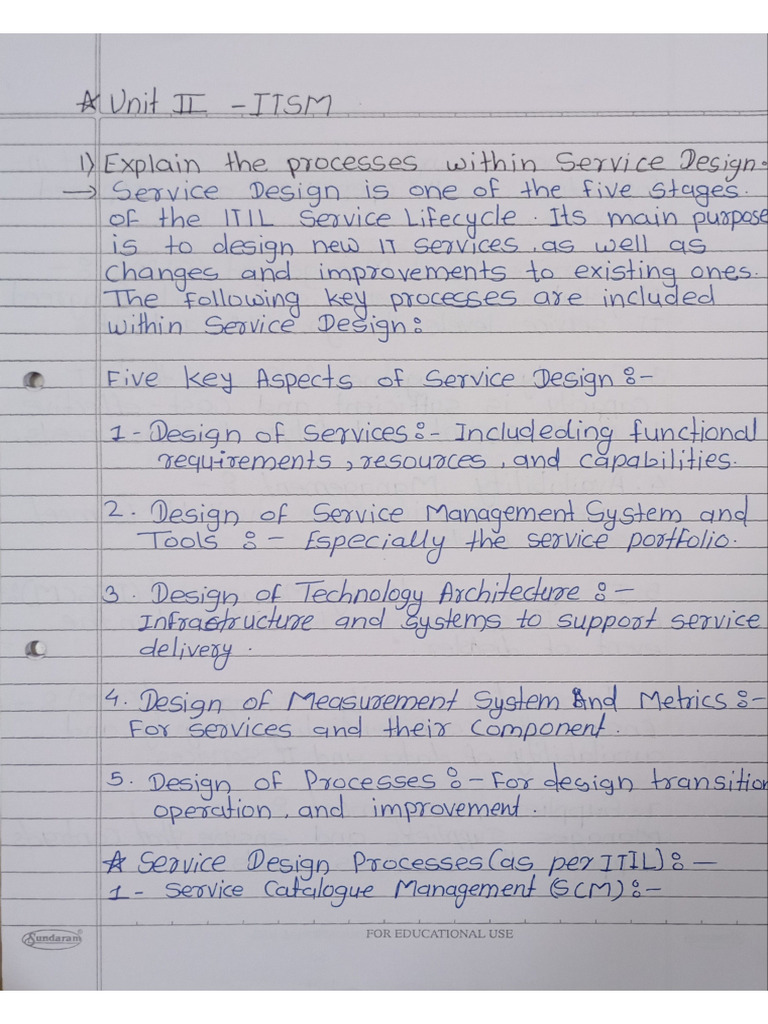 ☆ Unit II - ITSM
1) Explain the processes within Service Design.
→ Service Design is one of the five stages.
of the ITIL Service Lifecycle. Its main purpose
is to design new IT services, as well as
changes and improvements to existing ones.
The following key processes are included
within Service Design:
Five key Aspects of Service Design :-
1 - Design of Services :- Includeding functional
requirements, resources, and capabilities.
2. Design of Service Management System and
Tools :- Especially the service portfolio.
3. Design of Technology Architecture :-
Infrastructure and systems to support service
delivery.
4. Design of Measurement System And Metrics :-
For services and their component.
5. Design of Processes :- For design transition
operation, and improvement.
☆ Service Design Processes (as per ITIL) :-
1 - Service Catalogue Management (SCM) :-
Sundaram®
FOR EDUCATIONAL USE